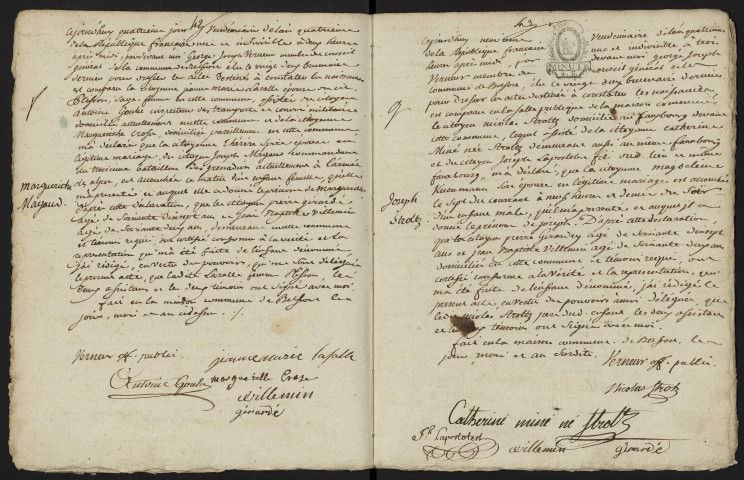 42
aujourdhuy quatrieme jour de Vendemiaire de lan quatrieme
de la Republique française une et indivisible a deux heures
apres midi, pardevant moi George Joseph Verneur membre du conseil
general de la commune de Belfort élu le vingt deux brumaire
dernier pour dresser les actes destinés a constater les naissances
est comparu la Citoyenne jeanne marie Lasalle epouse
Plisson, Sage femme en cette commune, assistée du citoyen
Antoine Goulu conducteur des transports et convoi militaire
domicilié actuellement en cette commune et de la citoyenne
Marguerithe Crose, domiciliée pareillement en cette commune,
m'a déclaré que la citoyenne Thérèse epouse en
légitime mariage du citoyen Joseph Mayaud commandant
du troisieme bataillon des grenadiers actuellement a l'armée
des alpes, est accouchée
m'a présenté, et auquel elle a donné le prenom de Marguerithe
D'après cette déclaration, que les citoyens pierre girardé
agé de Soixante dix sept ans et Jean Baptiste Villemin
agé de Soixante deux ans, demeurant en cette commune
et temoins requis, ont certifié conforme a la vérité et la
représentation qui m'a été faite de l'enfant dénommé
j'ai rédigé, en vertu des pouvoirs, qui me sont délégués
le présent acte, que ladite Lasalle femme Plisson, les
deux assistans et les deux témoins ont signé avec moi.
fait en la maison commune de Belfort les
jour, mois et an cidessus ./.
Marguerithe
Mayaud.
Verneur off. public
jeanne marie lasalle
Antoine Goulu
margueritte Crose
villemin
girardé
43
aujourdhuy neuvieme Vendemiaire de lan quatrieme
de la Republique française une et indivisible, a trois
heures apres midi, pardevant moi george Joseph
Verneur membre du conseil général de la
commune de Belfort, élu le vingt deux brumaire dernier
pour dresser les actes destinés a constater les naissances
est comparu en la salle publique de la maison commune,
le citoyen nicolas Stroltz domicilié au fauxbourg de
cette commune, lequel assisté de la citoyenne catherine
Miné née Stroltz demeurante aussi au meme fauxbourg
et du citoyen Joseph Lapostolet
fauxbourg, m'a déclaré, que la citoyenne magdeleine
Kuenemann son épouse en légitime mariage, est accouchée
le Sept du courant a neuf heures et demie du Soir
d'un enfant male, qu'il m'a présenté, et auquel il a
donné le prenom de joseph. D'après cette déclaration
que les citoyens pierre Girardey agé de Soixante dix sept
ans et jean Baptiste Villemin agé de Soixante deux ans
domiciliés en cette commune et témoins requis, ont
certifié conforme a la Vérité et la représentation, qui
m'a été faite de l'enfant dénommé, j'ai rédigé le
présent acte, en vertu des pouvoirs a moi délégués, que
ledit nicolas Stroltz pere dudit enfant, les deux assistans
et les deux témoins ont Signé avec moi.
fait en la maison commune de Belfort, les
jour, mois et an Susdits.
Joseph
Stroltz
Verneur off. public
Nicolas Strolz
Catherine miné né Stroltz
Jh Lapostolest
villemin
girardé